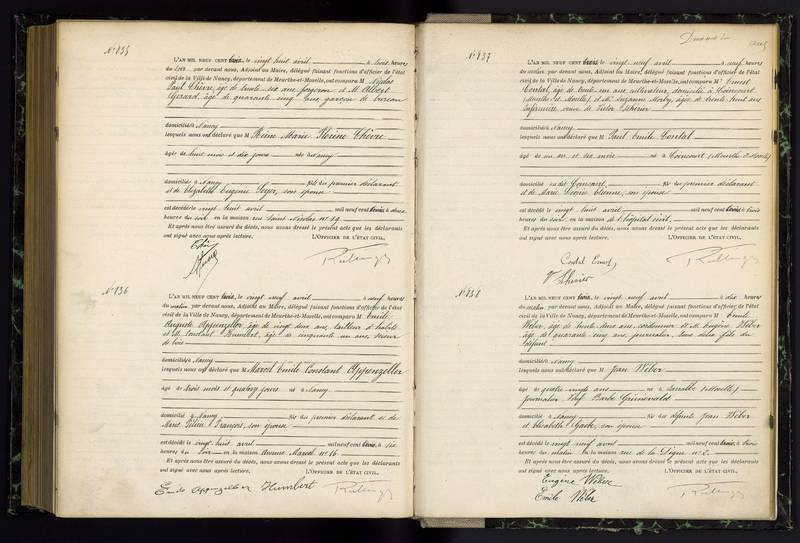 N° 835
L'AN MIL NEUF CENT trois, le vingt huit avril à trois heures
du soir par devant nous, Adjoint au Maire, délégué faisant fonctions d'officier de l'état
civil de la Ville de Nancy, département de Meurthe-et-Moselle, ont comparu M Nicolas
Paul Thièvre, âgé de trente six ans forgeron et M. Albert
âgé de quarante cinq ans, garçon de bureau
domiciliés à Nancy
lesquels nous ont déclaré que M Reine Marie Florine Thièvre
âgé de huit mois et dix jours né à Nancy
domicilié à Nancy fils du premier déclarant
et de Elizabeth Eugénie son épouse
est décédé le vingt huit avril mil neuf cent trois à
heures du soir en la maison rue Saint Nicolas n° 19
Et après nous être assuré du décès, nous avons dressé le présent acte que les déclarants
ont signé avec nous après lecture. L'OFFICIER DE L'ÉTAT CIVIL,
N° 836
L'AN MIL NEUF CENT trois, le vingt neuf avril à neuf heures
du matin par devant nous, Adjoint au Maire, délégué faisant fonctions d'officier de l'état
civil de la Ville de Nancy, département de Meurthe-et-Moselle, ont comparu M Emile
Auguste Appenzeller âgé de vingt deux ans, tailleur d'habits
et M. Constant Humbert, âgé de cinquante un ans,
de bois
domiciliés à Nancy
lesquels nous ont déclaré que M Marcel Emile Constant Appenzeller
âgé de trois mois et quatorze jours né à Nancy
domicilié à Nancy fils du premier déclarant et de
Marie François, son épouse
est décédé le vingt huit avril mil neuf cent trois, à six
heures du soir en la maison n° 16
Et après nous être assuré du décès, nous avons dressé le présent acte que les déclarants
ont signé avec nous après lecture. L'OFFICIER DE L'ÉTAT CIVIL,
Emile Appenzeller Humbert
N° 837
L'AN MIL NEUF CENT trois le vingt neuf avril à neuf heures
du matin par devant nous, Adjoint au Maire, délégué faisant fonctions d'officier de l'état
civil de la Ville de Nancy, département de Meurthe-et-Moselle, ont comparu M Ernest
Contal, âgé de trente un ans cultivateur, domicilié à Coincourt
(Meurthe et Moselle) et Me Suzanne âgée de trente huit ans
infirmière veuve de Victor
domiciliés à Nancy
lesquels nous ont déclaré que M Paul Emile Contal
âgé de un an et six mois né à Coincourt (Meurthe et Moselle)
domicilié au dit Coincourt, fils du premier déclarant
et de Marie Etienne, son épouse
est décédé le vingt huit avril mil neuf cent trois à trois
heures du soir en la maison de l'hôpital civil,
Et après nous être assuré du décès, nous avons dressé le présent acte que les déclarants
ont signé avec nous après lecture. L'OFFICIER DE L'ÉTAT CIVIL,
Contal Ernest
N° 838
L'AN MIL NEUF CENT trois, le vingt neuf avril à dix heures
du matin par devant nous, Adjoint au Maire, délégué faisant fonctions d'officier de l'état
civil de la Ville de Nancy, département de Meurthe-et-Moselle, ont comparu M Emile
Wéber, âgé de trente deux ans, cordonnier et M. Eugène Wéber
âgé de quarante cinq ans, journalier, tous deux fils du
défunt
domiciliés à Nancy
lesquels nous ont déclaré que M Jean Wéber
âgé de quatre vingts ans né à (Moselle)
journalier Barbe Grünevald
domicilié à Nancy fils des défunts Jean Wéber
et Elisabeth son épouse
est décédé le vingt neuf avril mil neuf cent trois, à trois
heures du matin en la maison rue de la Digue n° 2
Et après nous être assuré du décès, nous avons dressé le présent acte que les déclarants
ont signé avec nous après lecture. L'OFFICIER DE L'ÉTAT CIVIL,
Eugène Wéber
Emile Wéber